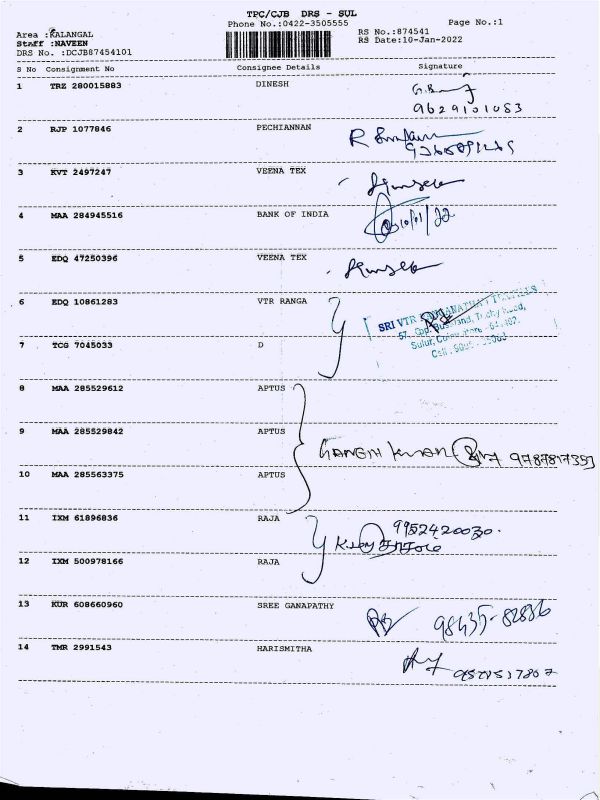 TPC/CJB DRS - SUL
Phone No.:0422-3505555
Page No.:1
Area :KALANGAL
RS No.:874541
Staff :NAVEEN
RS Date:10-Jan-2022
DRS No. :DCJB87454101
S No Consignment No Consignee Details Signature
1 TRZ 280015883 DINESH
9629101083
2 RJP 1077846 PECHIANNAN
3 KVT 2497247 VEENA TEX
4 MAA 284945516 BANK OF INDIA
10/01/22
5 EDQ 47250396 VEENA TEX
6 EDQ 10861283 VTR RANGA
SRI VTR
7 TCG 7045033 D
8 MAA 285529612 APTUS
9 MAA 285529842 APTUS
10 MAA 285563375 APTUS
11 IXM 61896836 RAJA
9952420030.
12 IXM 500978166 RAJA
13 KUR 608660960 SREE GANAPATHY
98435-82836
14 TMR 2991543 HARISMITHA